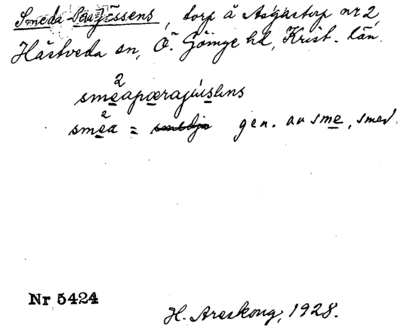 Smeda Per Jössens, torp å Asgastorp nr 2,
Hästveda sn, Ö. Göinge hd, Krist. län.
sme²apæraju̇slns
sme²a = gen. av sme, smed.
Nr 5424
H. Areskoug, 1928.